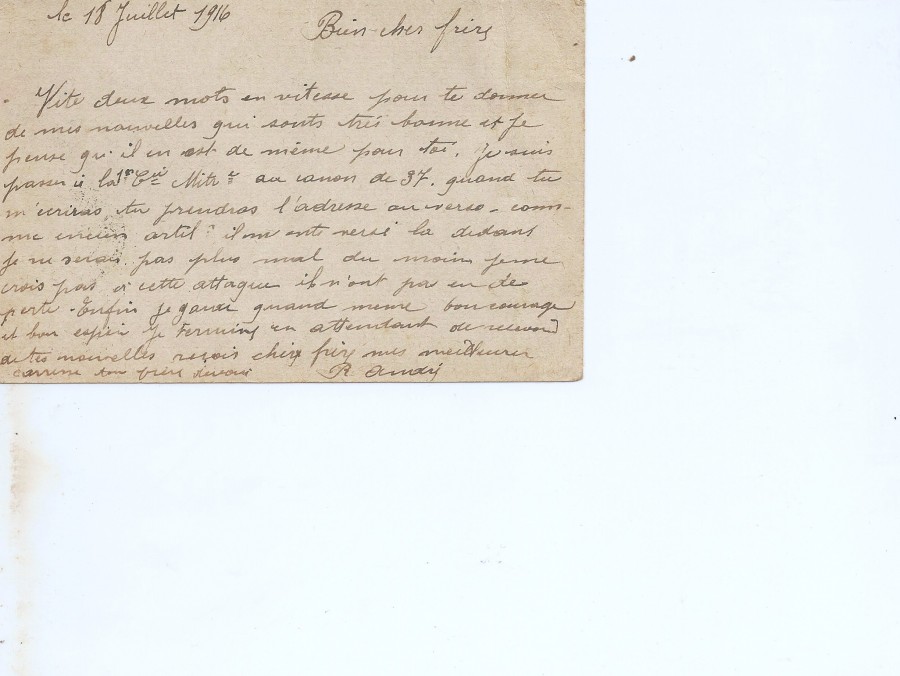 le 18 Juillet 1916
Bien cher frère
Vite deux mots en vitesse pour te donner
de mes nouvelles qui sonts très bonne et Je
pense qu'il en est de même pour toi. Je suis
passer à la 1re Cie Mitr se au canon de 37. quand tu
m'ecriras tu prendras l'adresse au verso - com-
me ancien artil. il m ont versé la dedans
Je ne serais pas plus mal du moin je me
crois pas à cette attaque il n'ont pas eu de
perte. Enfin Je garde quand meme bon courage
et bon espoir Je termine en attendant de recevoir
de tes nouvelles reçois cher frère mes meilleures
caresse ton frère dévoué R André